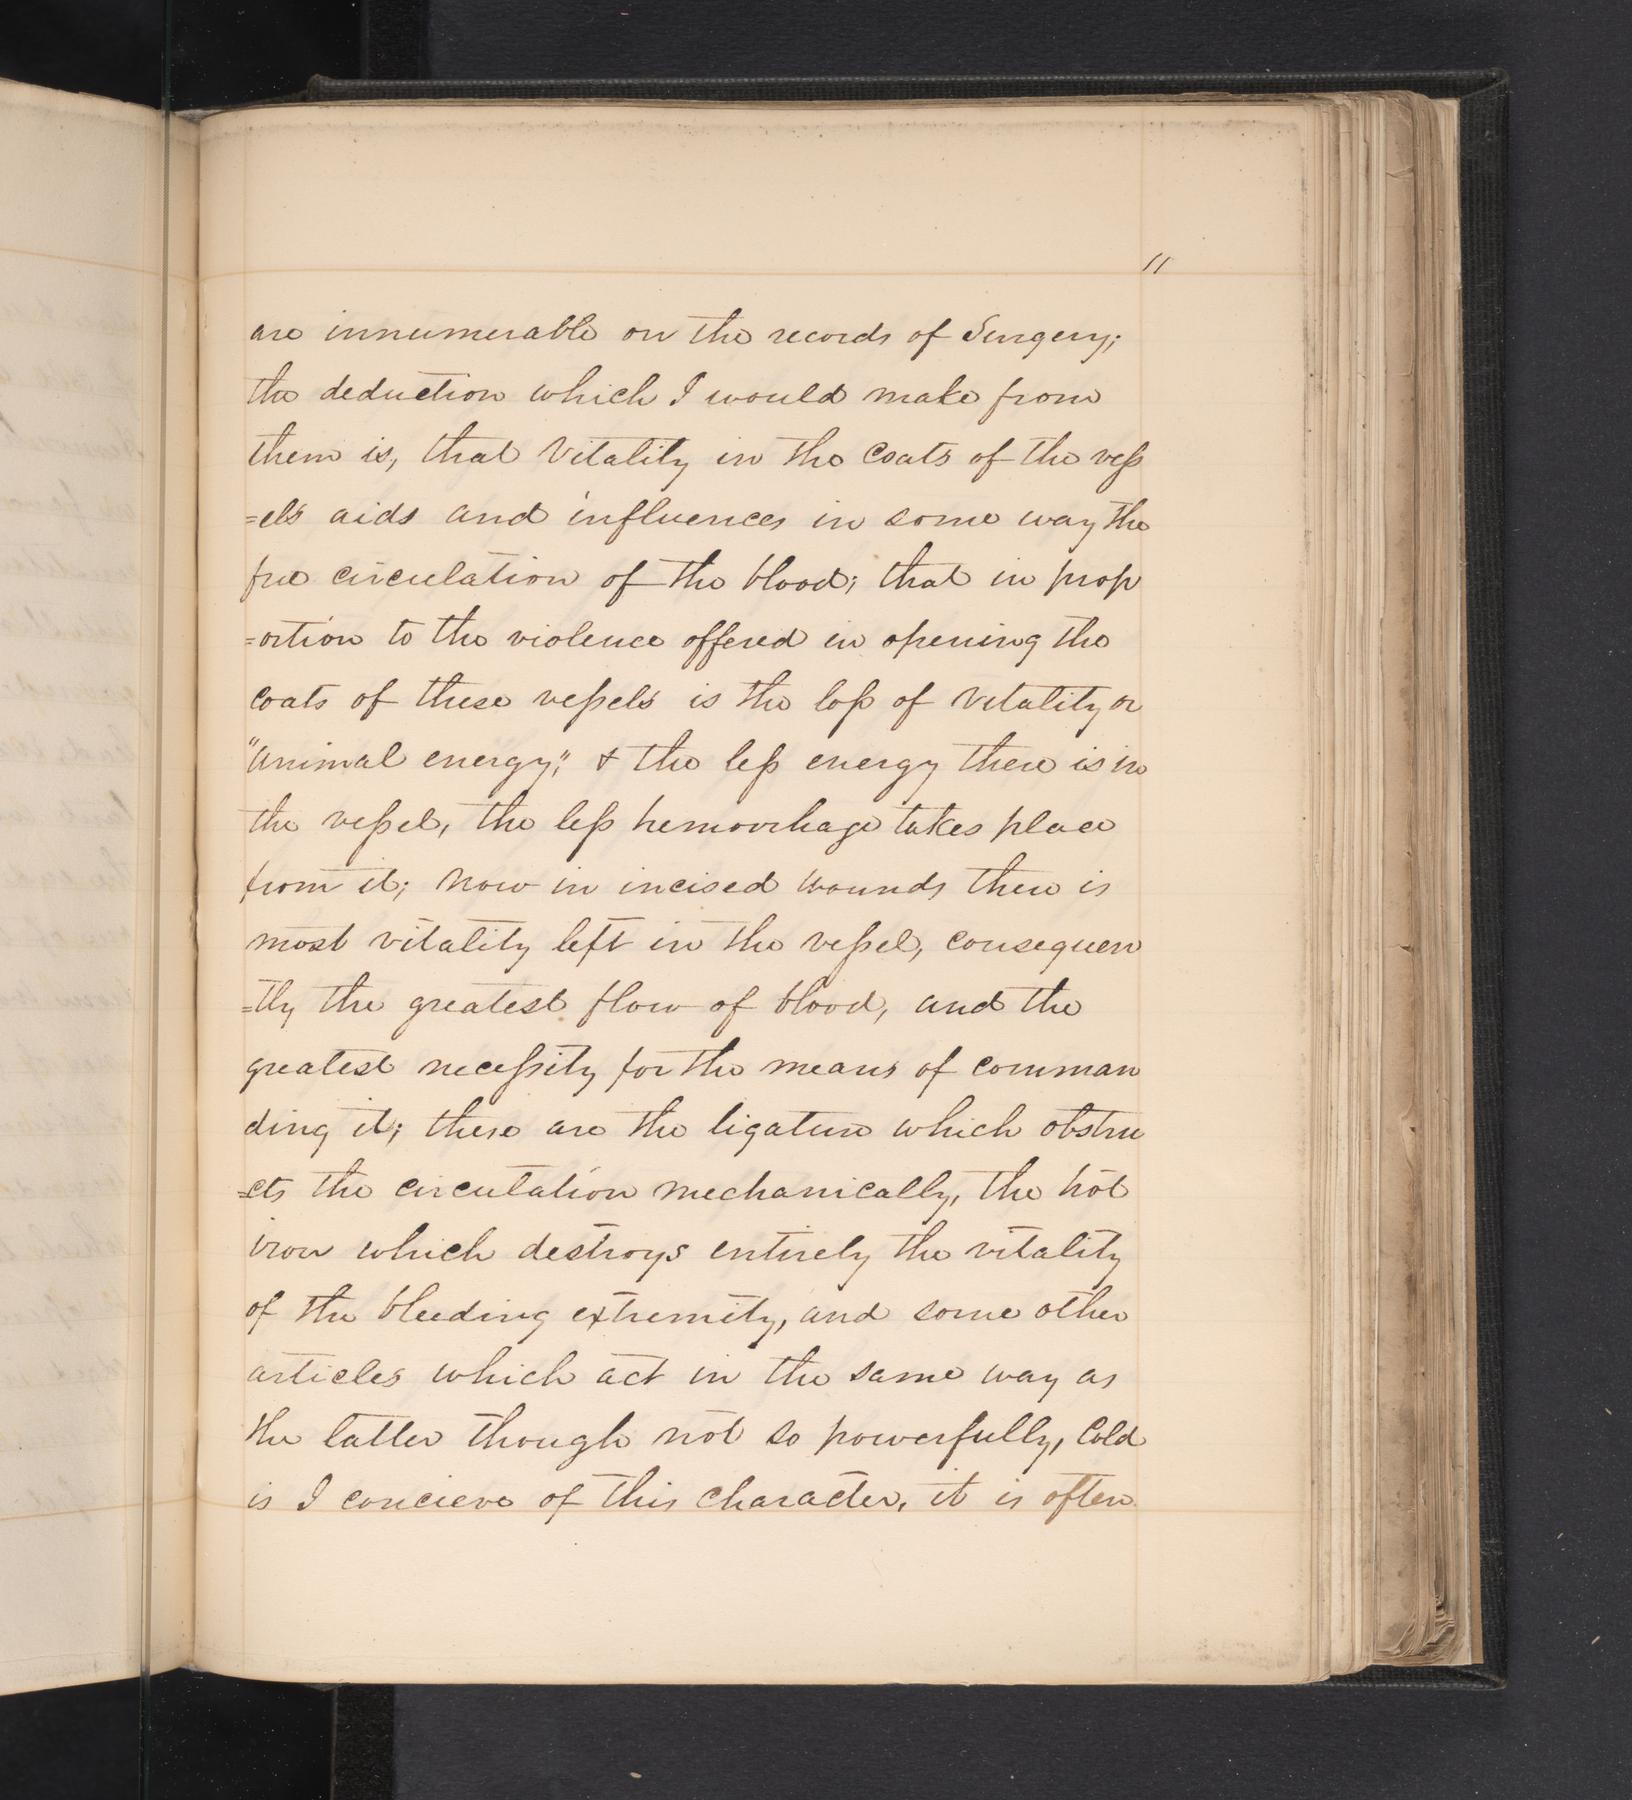 11
are innumerable on the records of Surgery;
the deduction which I would make from
them is, that Vitality in the Coats of the vess
=els aids and influences in some way the
free circulation of the blood; that in prop
=ortion to the violence offered in opening the
coats of these vessels is the loss of Vitality or
"animal energy;" & the less energy there is in
the vessel, the less hemorrhage takes place
from it; now in incised wounds there is
most vitality left in the vessel, consequen
=tly the greatest flow of blood, and the
greatest necessity for the means of comman
ding it; these are the ligature which obstru
=cts the circulation mechanically, the hot
iron which destroys entirely the vitality
of the bleeding extremity, and some other
articles which act in the same way as
the latter though not so powerfully, Cold
is I concieve of this character, it is often